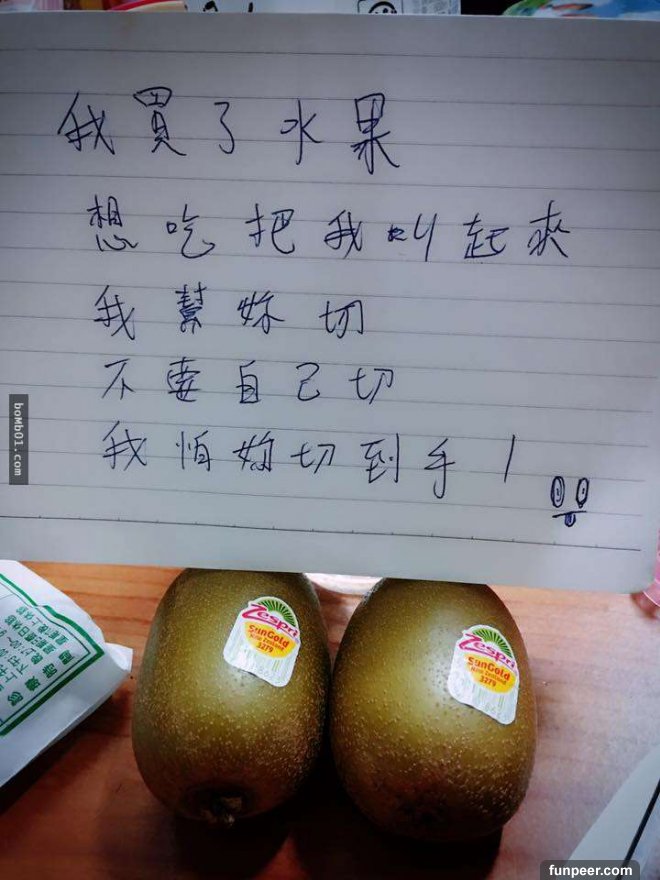 我買了水果
想吃把我叫起來
我幫妳切
不要自己切
我怕妳切到手！
boMb01.com
Zespri
SunGold
New Zealand
3279
Zespri
SunGold
New Zealand
3279
funpeer.com